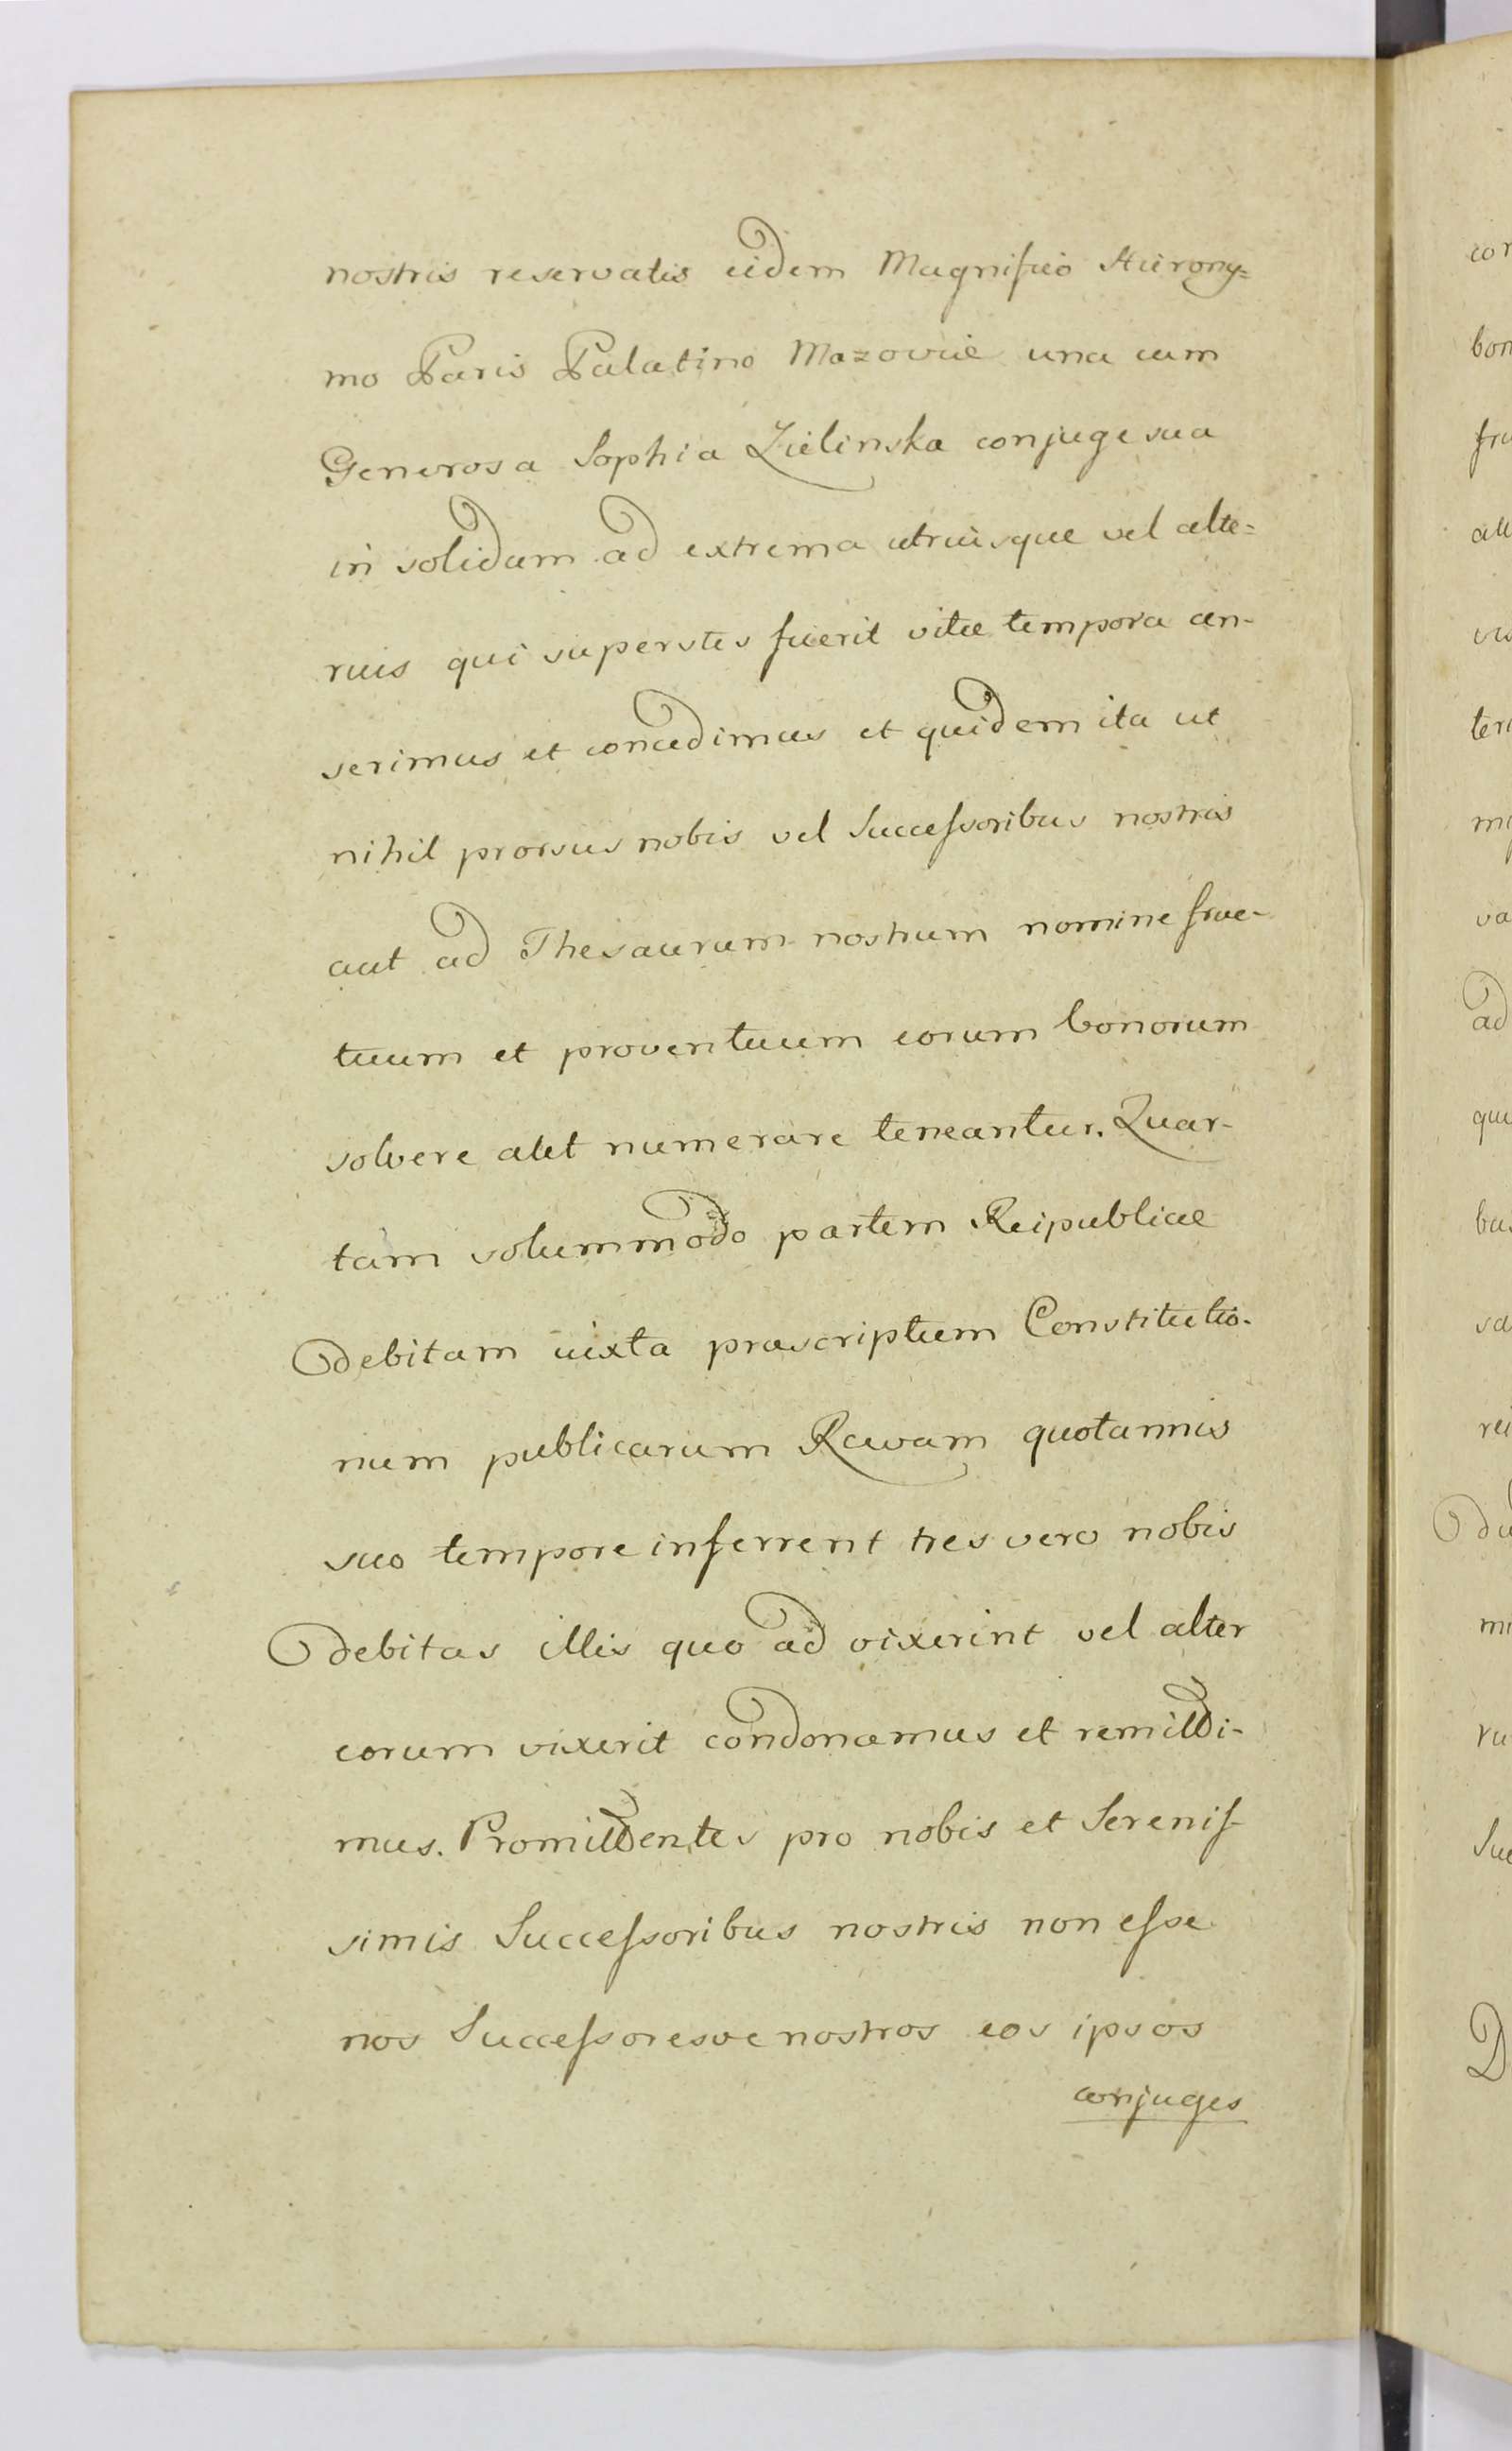 nostris reservatis eidem Magnifico Hierony=
mo Paris Palatino Mazoviæ una cum
Generosa Sophia Zielinska conjuge sua
in solidum ad extrema utriusque vel alte=
rius qui superstes fuerit vitæ tempora an-
serimus et concedimus et quidem ita ut
nihil prorsus nobis vel Successoribus nostris
aut ad Thesaurum nostrum nomine fruc-
tuum et proventuum eorum bonorum
solvere aut numerare teneantur. Quar-
tam solummodo partem Reipublicæ
debitam iuxta præscriptum Constitutio-
num publicarum Ravam quotannis
suo tempore inferrent tres vero nobis
debitas illis quo ad vixerint vel alter
eorum vixerit condonamus et remitti-
mus. Promittentes pro nobis et Serenis-
simis Successoribus nostris non esse
nos Successoresve nostros eos ipsos
conjuges